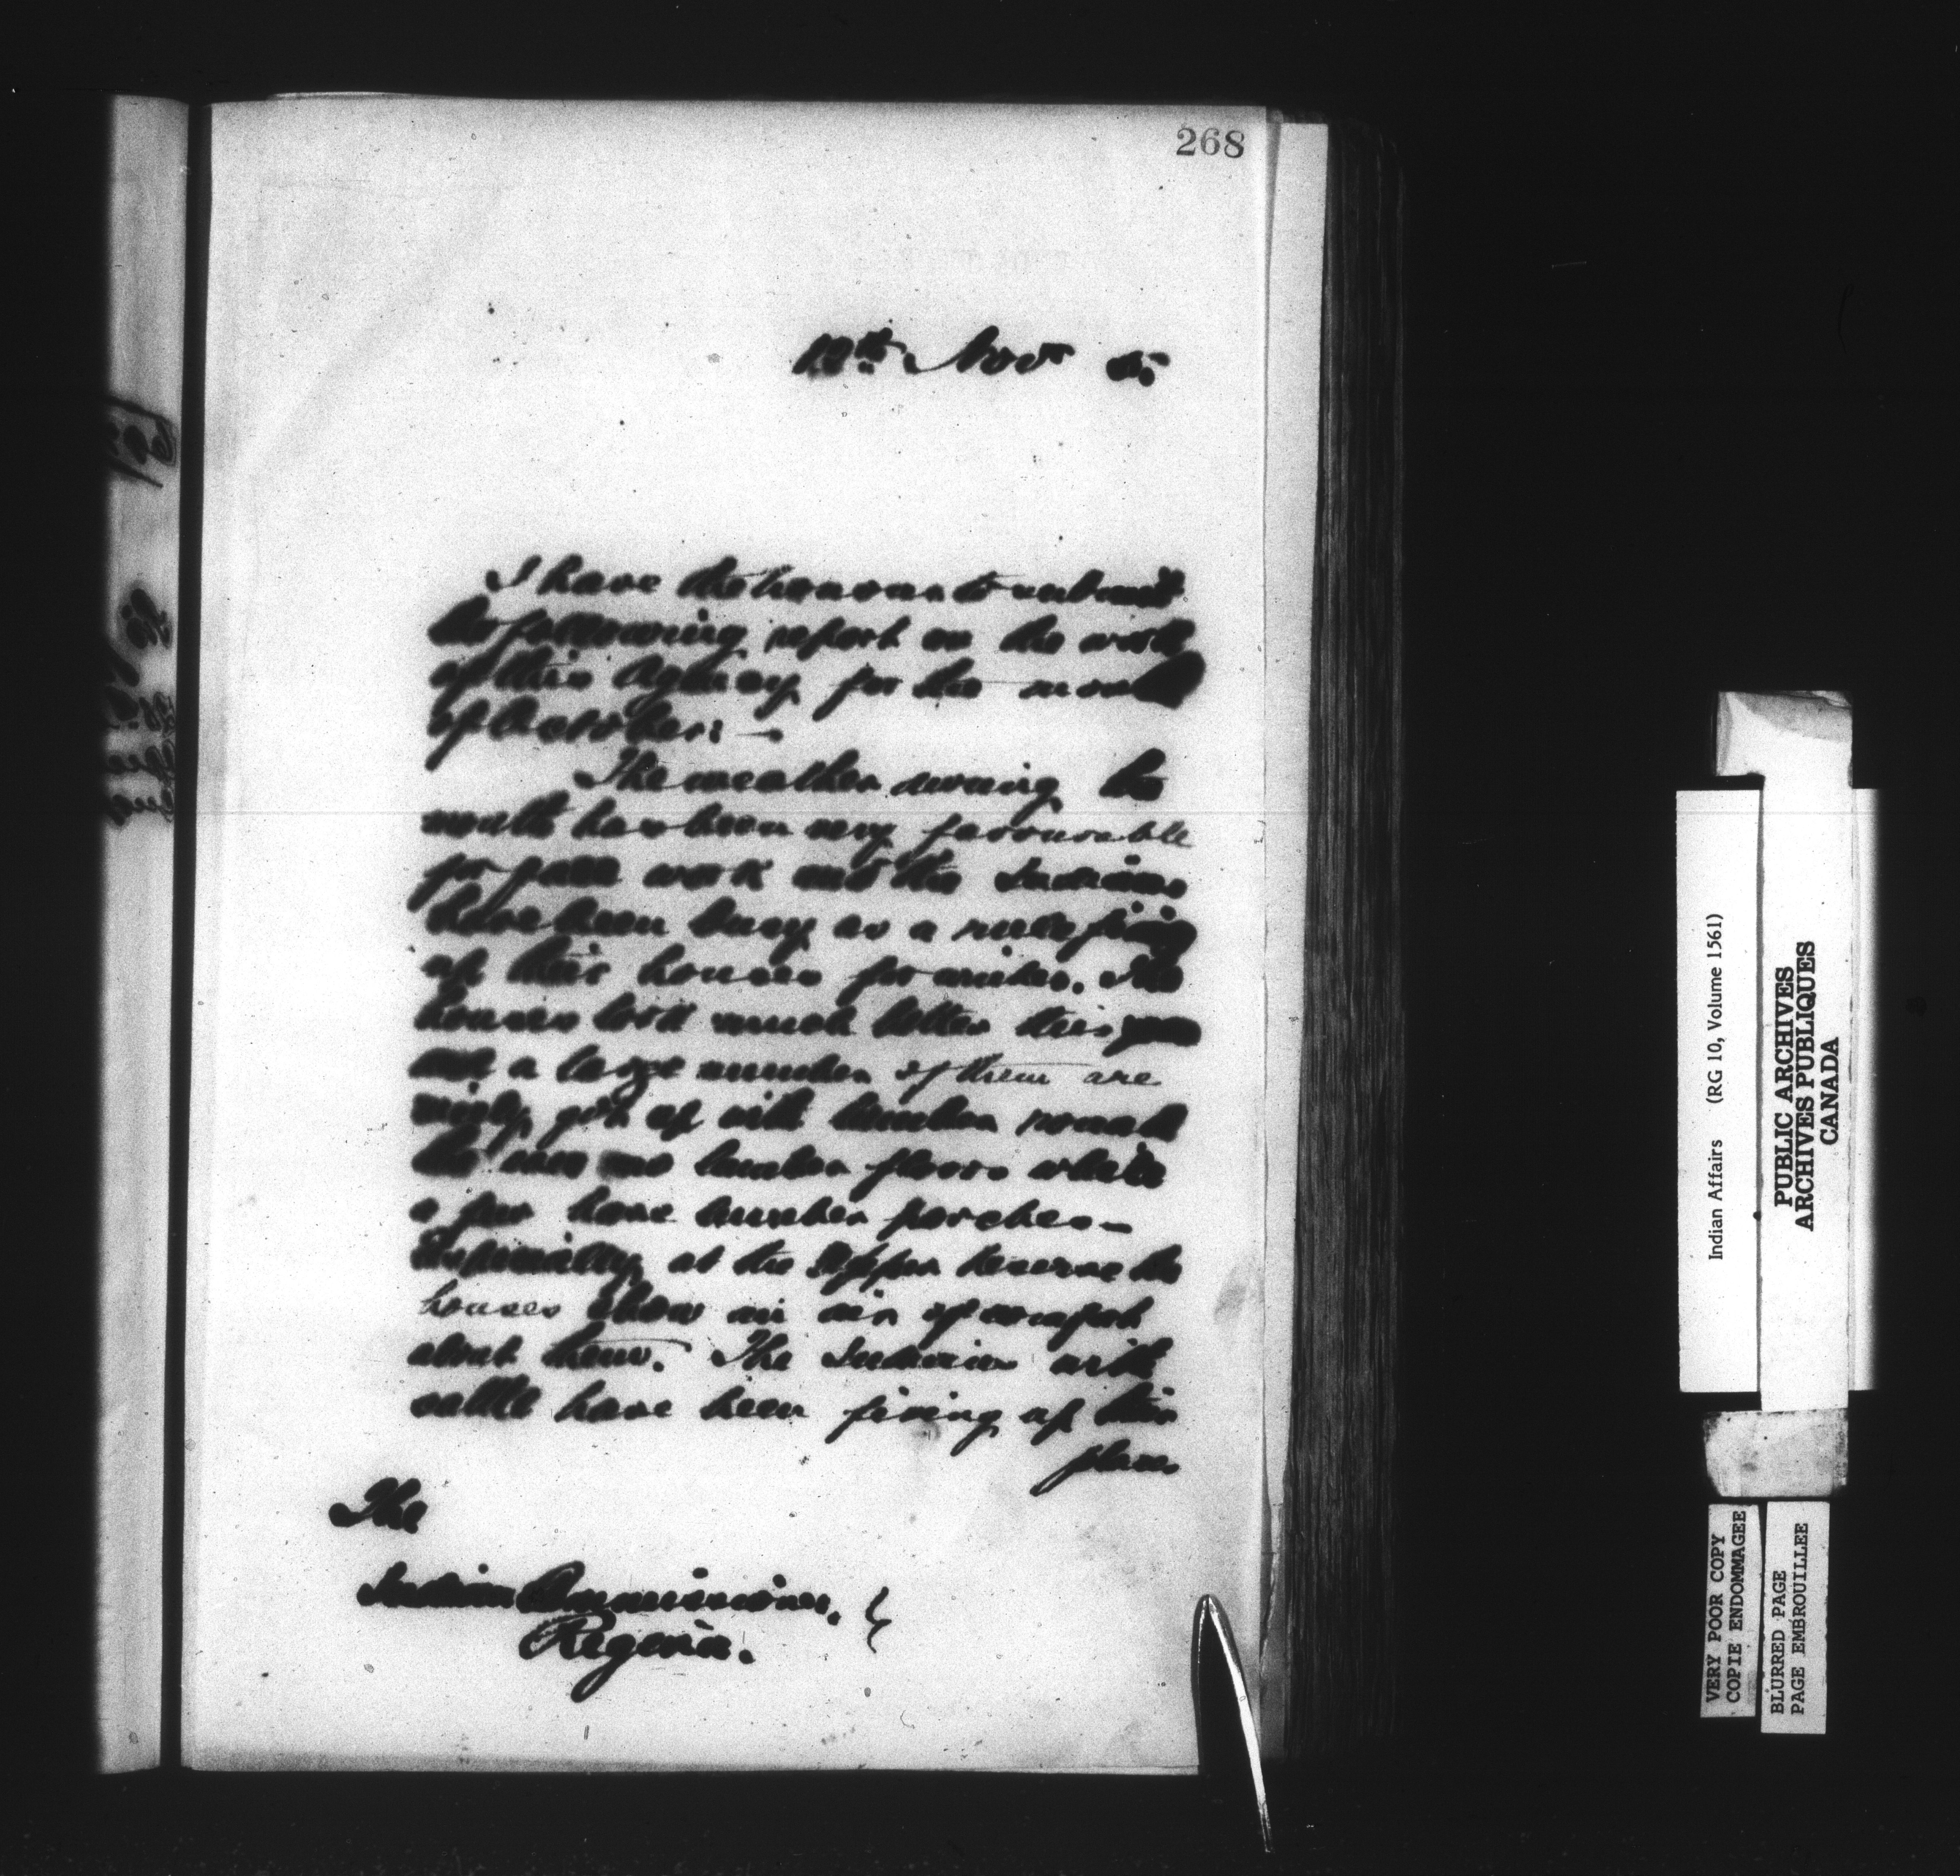 268
Nov
I have the honour to submit
the following report on the work
of this Agency for the month
of October: —
The weather during the
month has been very favourable
for fall work and the Indians
have been busy as a rule fixing
up their houses for winter. The
houses look much better this year
and a large number of them are
nicely got up with lumber round
the lumber floors while
a few have lumber porches —
Especially at the Upper Reserve the
houses show an air of comfort
about them. The Indians with
cattle have been fixing up their
place
The
Indian Commissioner,
Regina.
Indian Affairs (RG 10, Volume 1561)
PUBLIC ARCHIVES
ARCHIVES PUBLIQUES
CANADA
VERY POOR COPY
COPIE ENDOMMAGEE
BLURRED PAGE
PAGE EMBROUILLEE